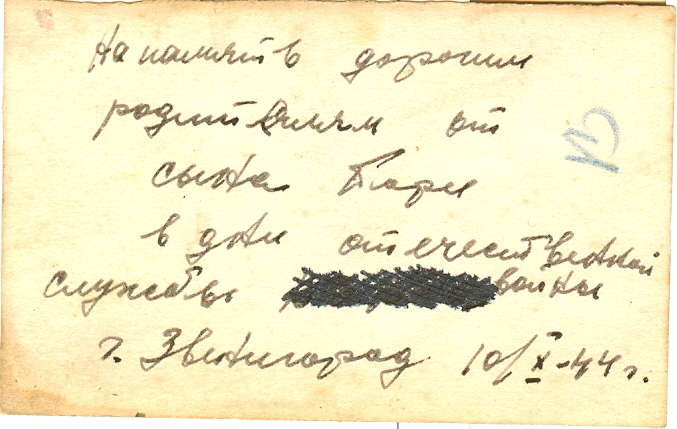 На память дорогим
родителям от
сына Бори
в дни отечественной
службы войны
г. Звенигород 10/X-44 г.